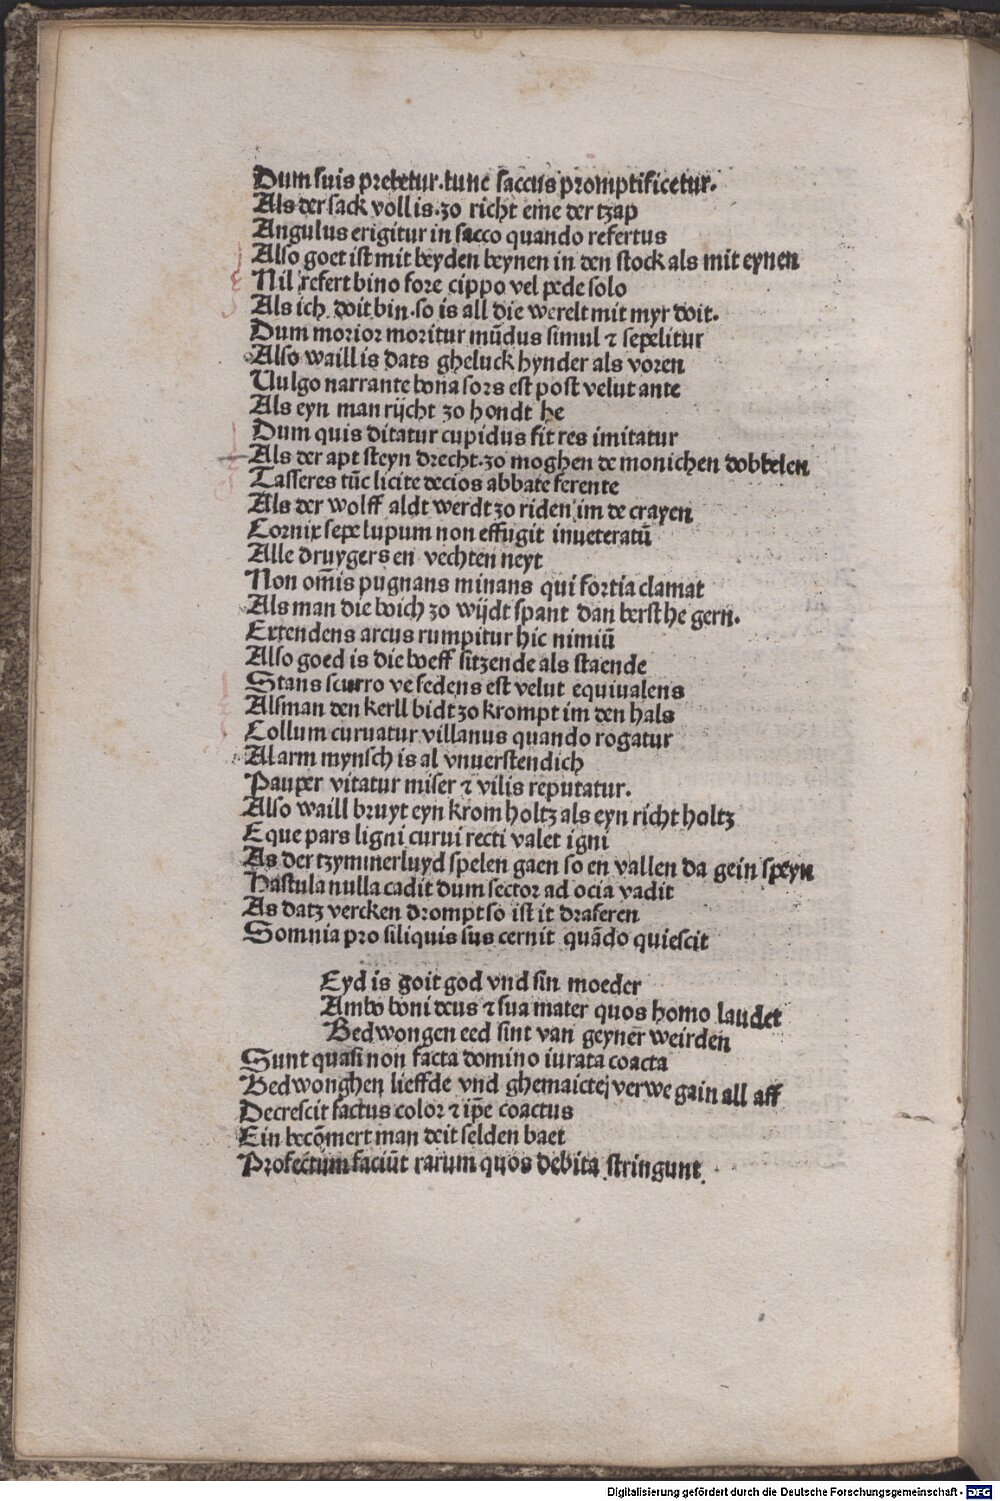 Dum suis prebetur.tunc saccus promptificetur.
Als der sack voll is.zo richt eme der tzap
Angulus erigitur in sacco quando refertus
Also goet ist mit beyden beynen in den stock als mit eynen
Nil refert bino fore cippo vel pede solo
Als ich doit bin.so is all die werelt mit myr doit.
Dum morior moritur mūdus simul ⁊ sepelitur
Also waill is dats gheluck hynder als voren
Uulgo narrante bona sors est post velut ante
Als eyn man rijcht zo hondt he
Dum quis ditatur cupidus fit res imitatur
Als der apt steyn drecht.zo moghen de monichen dobbelen
Tasseres tūc licite decios abbate ferente
Als der wolff aldt werdt zo riden im de crayen
Cornix sepe lupum non effugit inueteratū
Alle druygers en vechten neyt
Non om̄is pugnans minans qui fortia clamat
Als man die boich zo wijdt spant dan berst he gern.
Extendens arcus rumpitur hic nimiū
Also goed is die boeff sitzende als staende
Stans scurro ve sedens est velut equiualens
Alsman den kerll bidt zo krompt im den hals
Collum curuatur villanus quando rogatur
Al arm mynsch is al vnuerstendich
Pauper vitatur miser ⁊ vilis reputatur.
Also waill bruyt eyn krom holtz als eyn richt holtz
Eque pars ligni curui recti valet igni
As der tzymmerluyd spelen gaen so en vallen da gein speyn
Hastula nulla cadit dum sector ad ocia vadit
As datz vercken drompt so ist it draferen
Somnia pro siliquis sus cernit quādo quiescit
Eyd is goit god vnd sin moeder
Ambo boni deus ⁊ sua mater quos homo laudet
Bedwongen eed sint van geyner̄ weirden
Sunt quasi non facta domino iurata coacta
Bedwonghen lieffde vnd ghemaicte verwe gain all aff
Decrescit factus color ⁊ ip̄e coactus
Ein becōmert man deit selden baet
Profectum faciūt rarum quos debita stringunt.
Digitalisierung gefördert durch die Deutsche Forschungsgemeinschaft - DFG